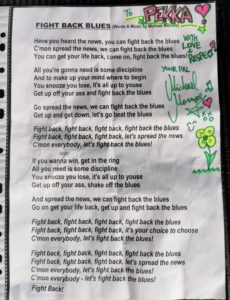 TO PEKKA!
FIGHT BACK BLUES (Words & Music by Michael Monroe)
WITH LOVE & RESPECT
YOUR PAL
Michael Monroe
Have you heard the news, you can fight back the blues
C'mon spread the news, we can fight back the blues
You can get your life back, come on, fight back the blues!
All you're gonna need is some discipline
And to make up your mind where to begin
You snooze you lose, it's all up to youse
Get up off your ass and fight back the blues
Go spread the news, we can fight back the blues
Get up and get down, let's go beat the blues
Fight back, fight back, fight back, fight back the blues
Fight back, fight back, fight back, let's spread the news
C'mon everybody, let's fight back the blues!
If you wanna win, get in the ring
All you need is some discipline
You snooze you lose, it's all up to youse
Get up off your ass, shake off the blues
And spread the news, we can fight back the blues
Go on get your life back, get up and fight back the blues
Fight back, fight back, fight back, fight back the blues
Fight back, fight back, fight back, it's your choice to choose
C'mon everybody, let's fight back the blues!
Fight back, fight back, fight back, fight back the blues
Fight back, fight back, fight back, let's spread the news
C'mon everybody, let's fight back the blues!
C'mon everybody - let's fight back the blues!
Fight Back!